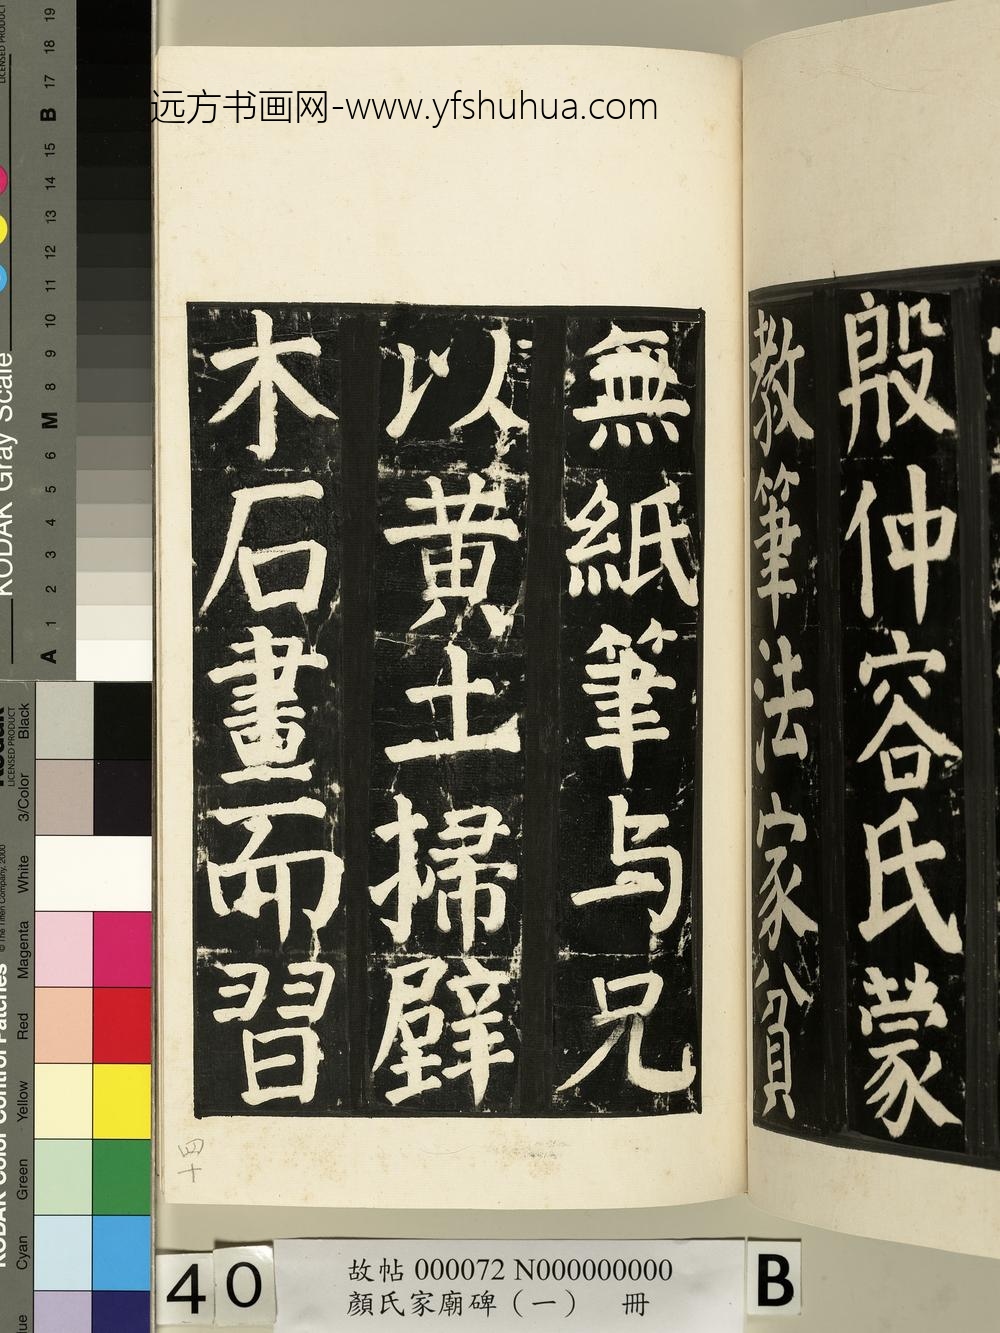 远方书画网-www.yfshuhua.com
殷仲容氏蒙
教筆法家貧
無紙筆与兄
以黄土掃壁
木石畫而習
四十
40
故帖 000072 N000000000
顏氏家廟碑（一） 冊
B
KODAK Gray Scale
A 1 2 3 4 5 6 M 8 9 10 11 12 13 14 15 B 17 18 19
LICENSED PRODUCT
KODAK Color Control Patches
© The Tiffen Company, 2000
LICENSED PRODUCT
Cyan Green Yellow Red Magenta White 3/Color Black